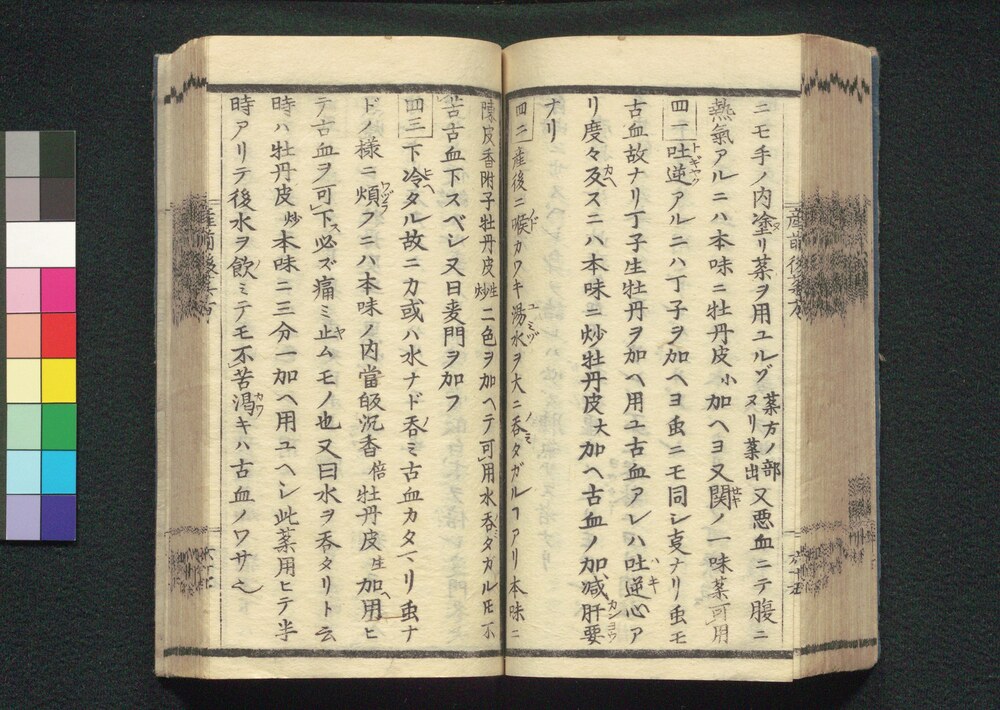 ニモ手ノ内塗リ薬ヲ用ユルゾ薬方ノ部ヌリ薬出又悪血ニテ腹ニ
熱氣アルニハ本味ニ牡丹皮小加ヘヨ又関ノ一味薬可用
四一吐逆アルニハ丁子ヲ加ヘヨ虫ニモ同シ叓ナリ虫モ
古血故ナリ丁子生牡丹ヲ加ヘ用ユ古血アレハ吐逆心ア
リ度々及スニハ本味ニ炒牡丹皮大加ヘ古血ノ加減肝要
ナリ
四二産後ニ喉カワキ湯水ヲ大ニ呑タガルヿアリ本味ニ
陳皮香附子牡丹皮生炒二色ヲ加ヘテ可用水呑タガルモ不
苦古血下スベシ又曰麦門ヲ加フ
四三下冷タル故ニカ或ハ水ナド呑ミ古血カタマリ虫ナ
ドノ様ニ煩フニハ本味ノ内當皈沉香倍牡丹皮生加ヘ用ヒ
テ古血ヲ可下必ズ痛ミ止ムモノ也又曰水ヲ呑タリト云
時ハ牡丹皮炒本味ニ三分一加ヘ用ユヘシ此薬用ヒテ半
時アリテ後水ヲ飲ミテモ不苦渇キハ古血ノワサ也